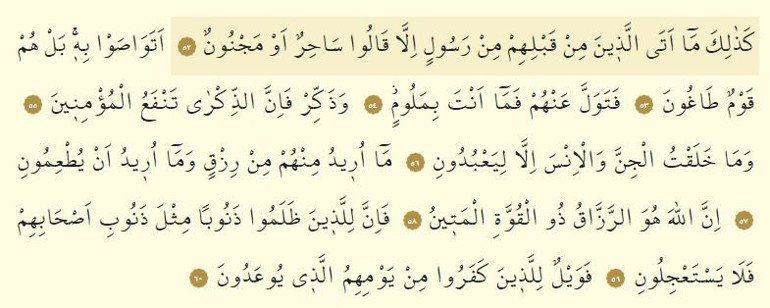 كَذٰلِكَ مَٓا اَتَى الَّذ۪ينَ مِنْ قَبْلِهِمْ مِنْ رَسُولٍ اِلَّا قَالُوا سَاحِرٌ اَوْ مَجْنُونٌ ﴿٥٢﴾ اَتَوَاصَوْا بِه۪ۚ بَلْ هُمْ
قَوْمٌ طَاغُونَ ﴿٥٣﴾ فَتَوَلَّ عَنْهُمْ فَمَٓا اَنْتَ بِمَلُومٍۘ ﴿٥٤﴾ وَذَكِّرْ فَاِنَّ الذِّكْرٰى تَنْفَعُ الْمُؤْمِن۪ينَ ﴿٥٥﴾
وَمَا خَلَقْتُ الْجِنَّ وَالْاِنْسَ اِلَّا لِيَعْبُدُونِ ﴿٥٦﴾ مَٓا اُر۪يدُ مِنْهُمْ مِنْ رِزْقٍ وَمَٓا اُر۪يدُ اَنْ يُطْعِمُونِ
﴿٥٧﴾ اِنَّ اللّٰهَ هُوَ الرَّزَّاقُ ذُو الْقُوَّةِ الْمَت۪ينُ ﴿٥٨﴾ فَاِنَّ لِلَّذ۪ينَ ظَلَمُوا ذَنُوبًا مِثْلَ ذَنُوبِ اَصْحَابِهِمْ
فَلَا يَسْتَعْجِلُونِ ﴿٥٩﴾ فَوَيْلٌ لِلَّذ۪ينَ كَفَرُوا مِنْ يَوْمِهِمُ الَّذ۪ي يُوعَدُونَ ﴿٦٠﴾